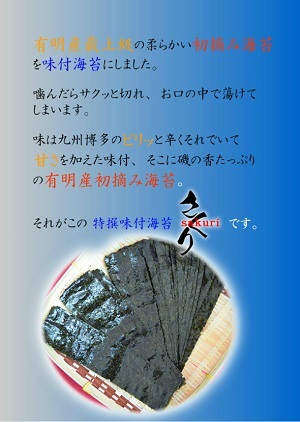 有明産最上級の柔らかい初摘み海苔
を味付海苔にしました。
噛んだらサクッと切れ、お口の中で蕩けて
しまいます。
味は九州博多のピリッと辛くそれでいて
甘さを加えた味付、そこに磯の香たっぷり
の有明産初摘み海苔。
それがこの 特撰味付海苔 さくり sakuri です。